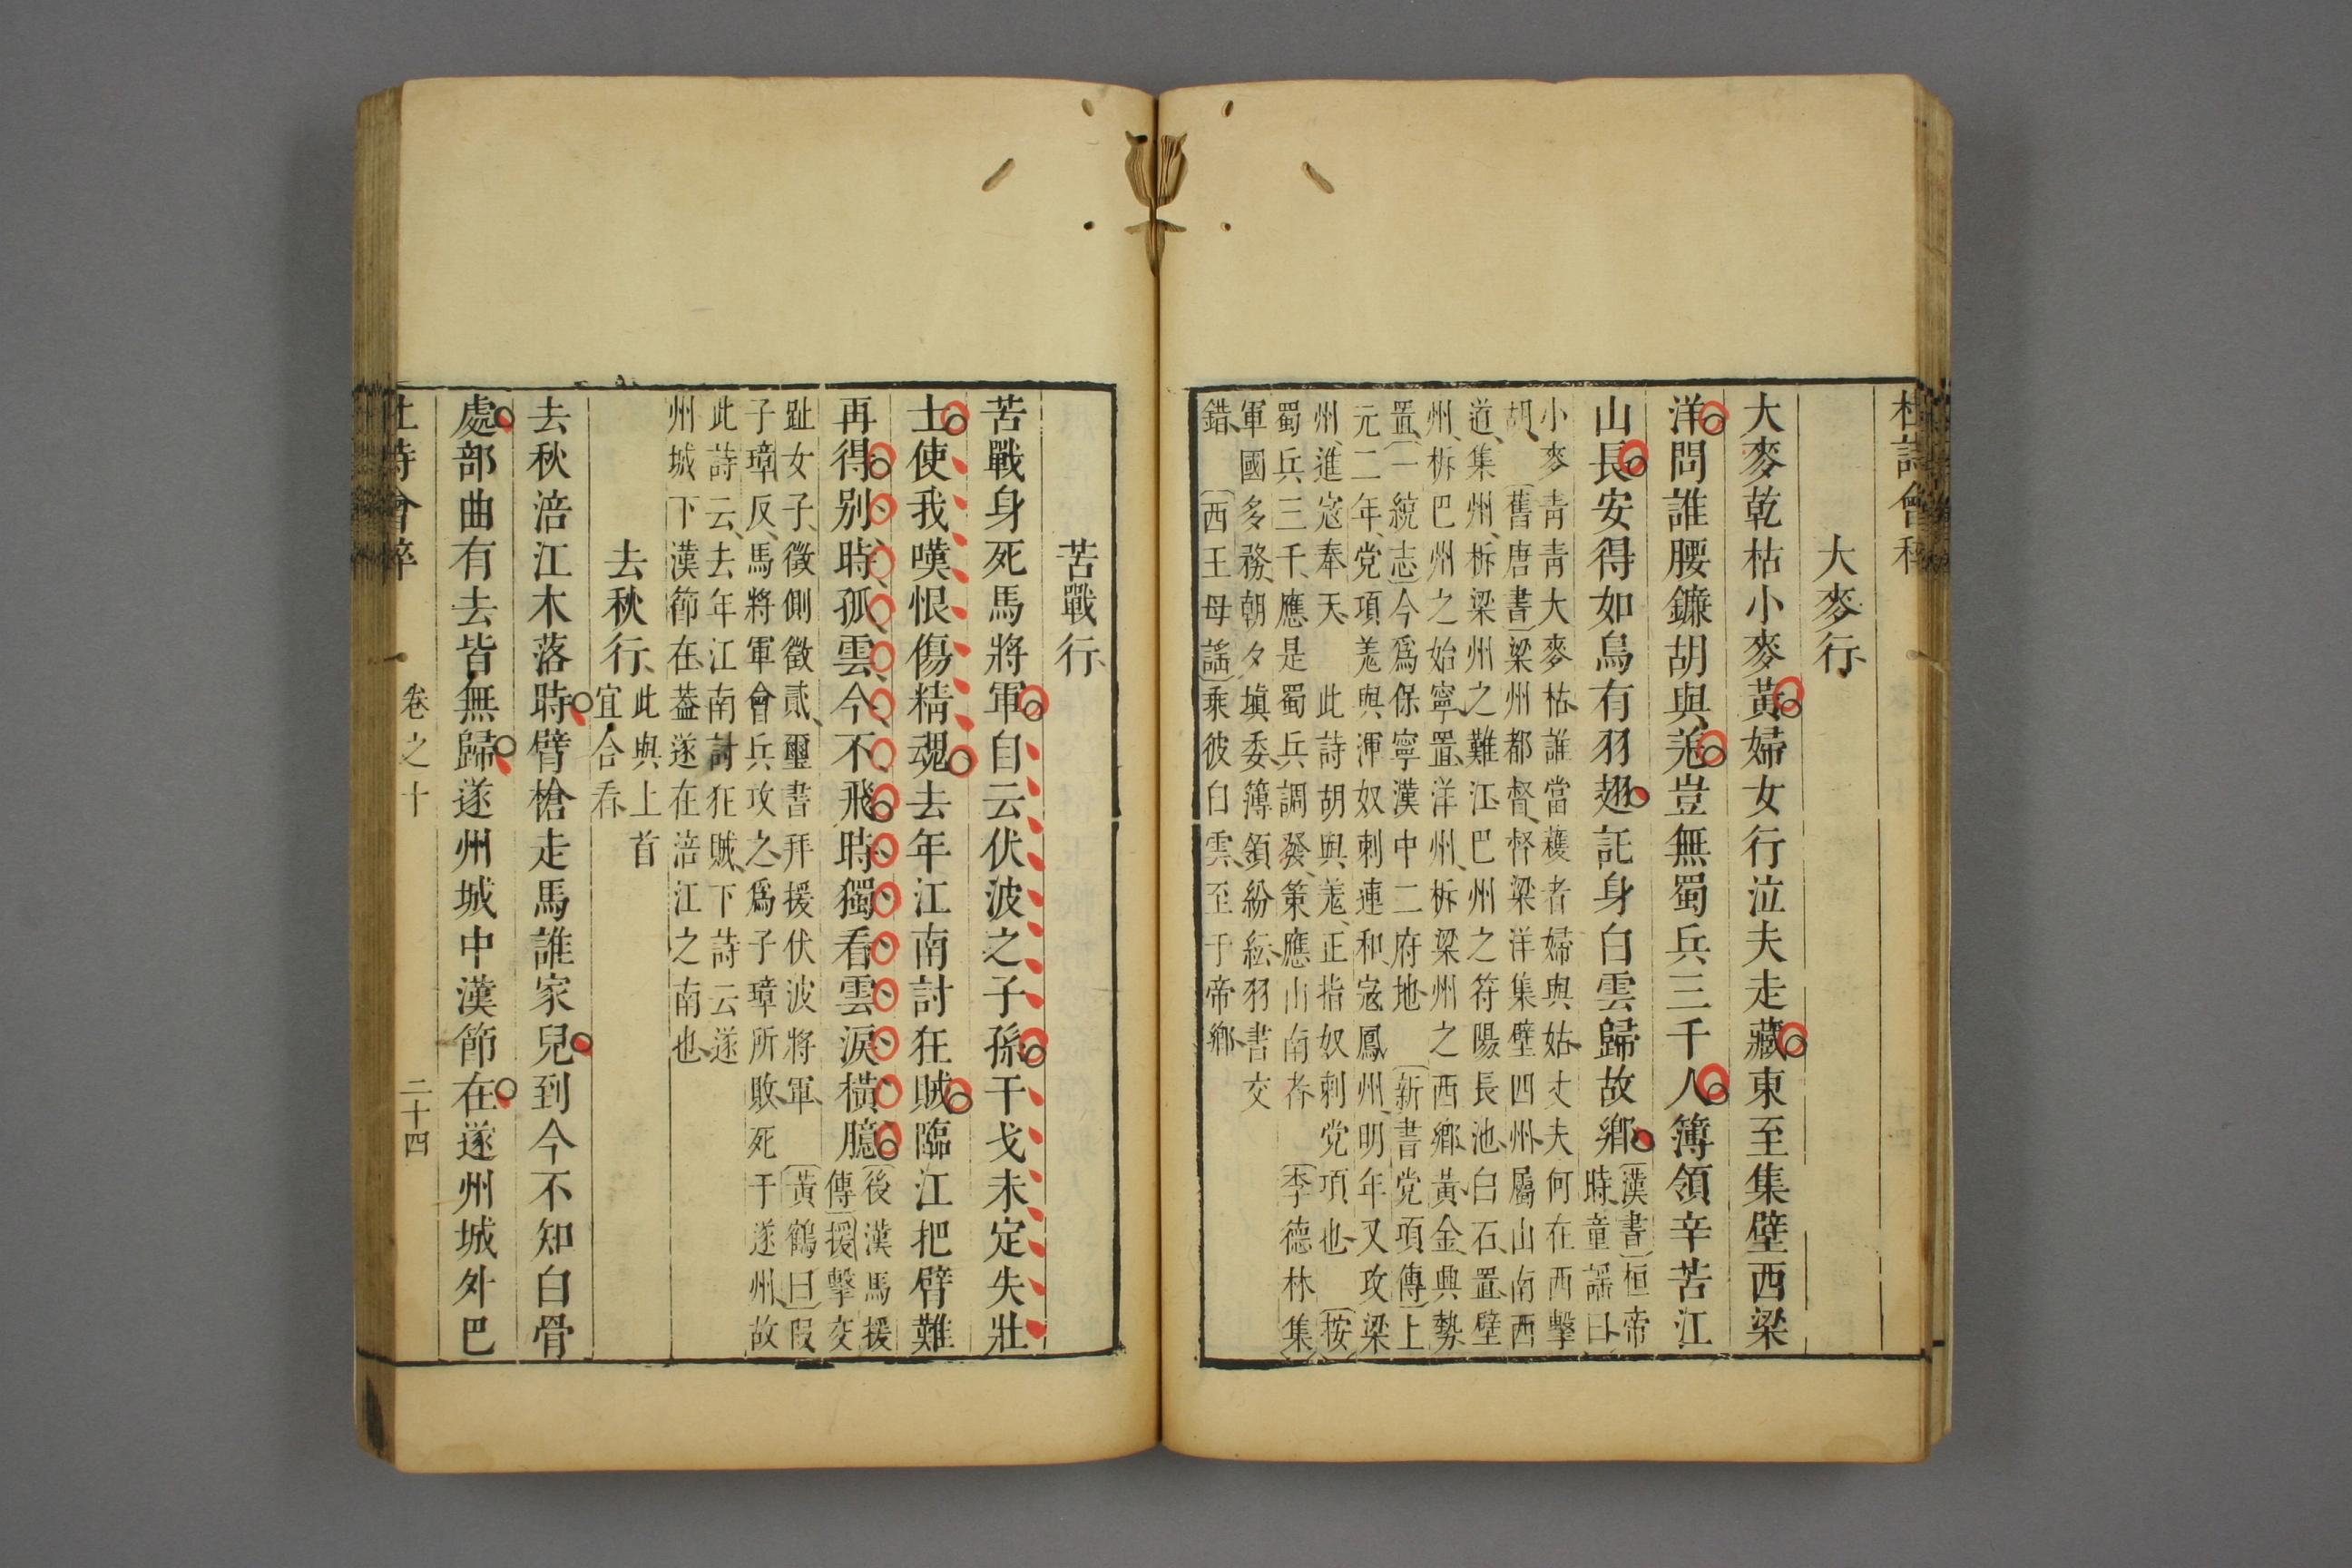 杜詩會稡
大麥行
大麥乾枯小麥黃婦女行泣夫走藏東至集壁西梁
洋問誰腰鐮胡與羗豈無蜀兵三千人簿領辛苦江
山長安得如鳥有羽翅託身白雲歸故鄉
漢書桓帝
時童謡曰
小麥青青大麥枯誰當穫者婦與姑丈夫何在西擊
胡舊唐書梁州都督督梁洋集壁四州屬山南西
道集州析梁州之難江巴州之符陽長池白石置壁
州析巴州之始寧置洋州析梁州之西鄉黃金興勢
置一統志今爲保寧漢中二府地 新書党項傳上
元二年党項羗與渾奴刺連和寇鳳州明年又攻梁
州進寇奉天 此詩胡與羗正指奴刺党項也 按
蜀兵三千應是蜀兵調發策應山南者 李德林集
軍國多務朝夕塡委簿領紛紜羽書交
錯 西王母謡乘彼白雲至于帝鄉
苦戰行
苦戰身死馬將軍自云伏波之子孫干戈未定失壯
士使我嘆恨傷精魂去年江南討狂賊臨江把臂難
再得别時孤雲今不飛時獨看雲淚橫臆
後漢馬援
傳援擊交
趾女子徵側徵貳璽書拜援伏波將軍 黃鶴曰叚
子璋反馬將軍會兵攻之爲子璋所敗死于遂州故
此詩云去年江南討狂賊下詩云遂
州城下漢節在葢遂在涪江之南也
去秋行
此與上首
宜合看
去秋涪江木落時臂槍走馬誰家兒到今不知白骨
處部曲有去皆無歸遂州城中漢節在遂州城外巴
杜詩會稡 卷之十 二十四